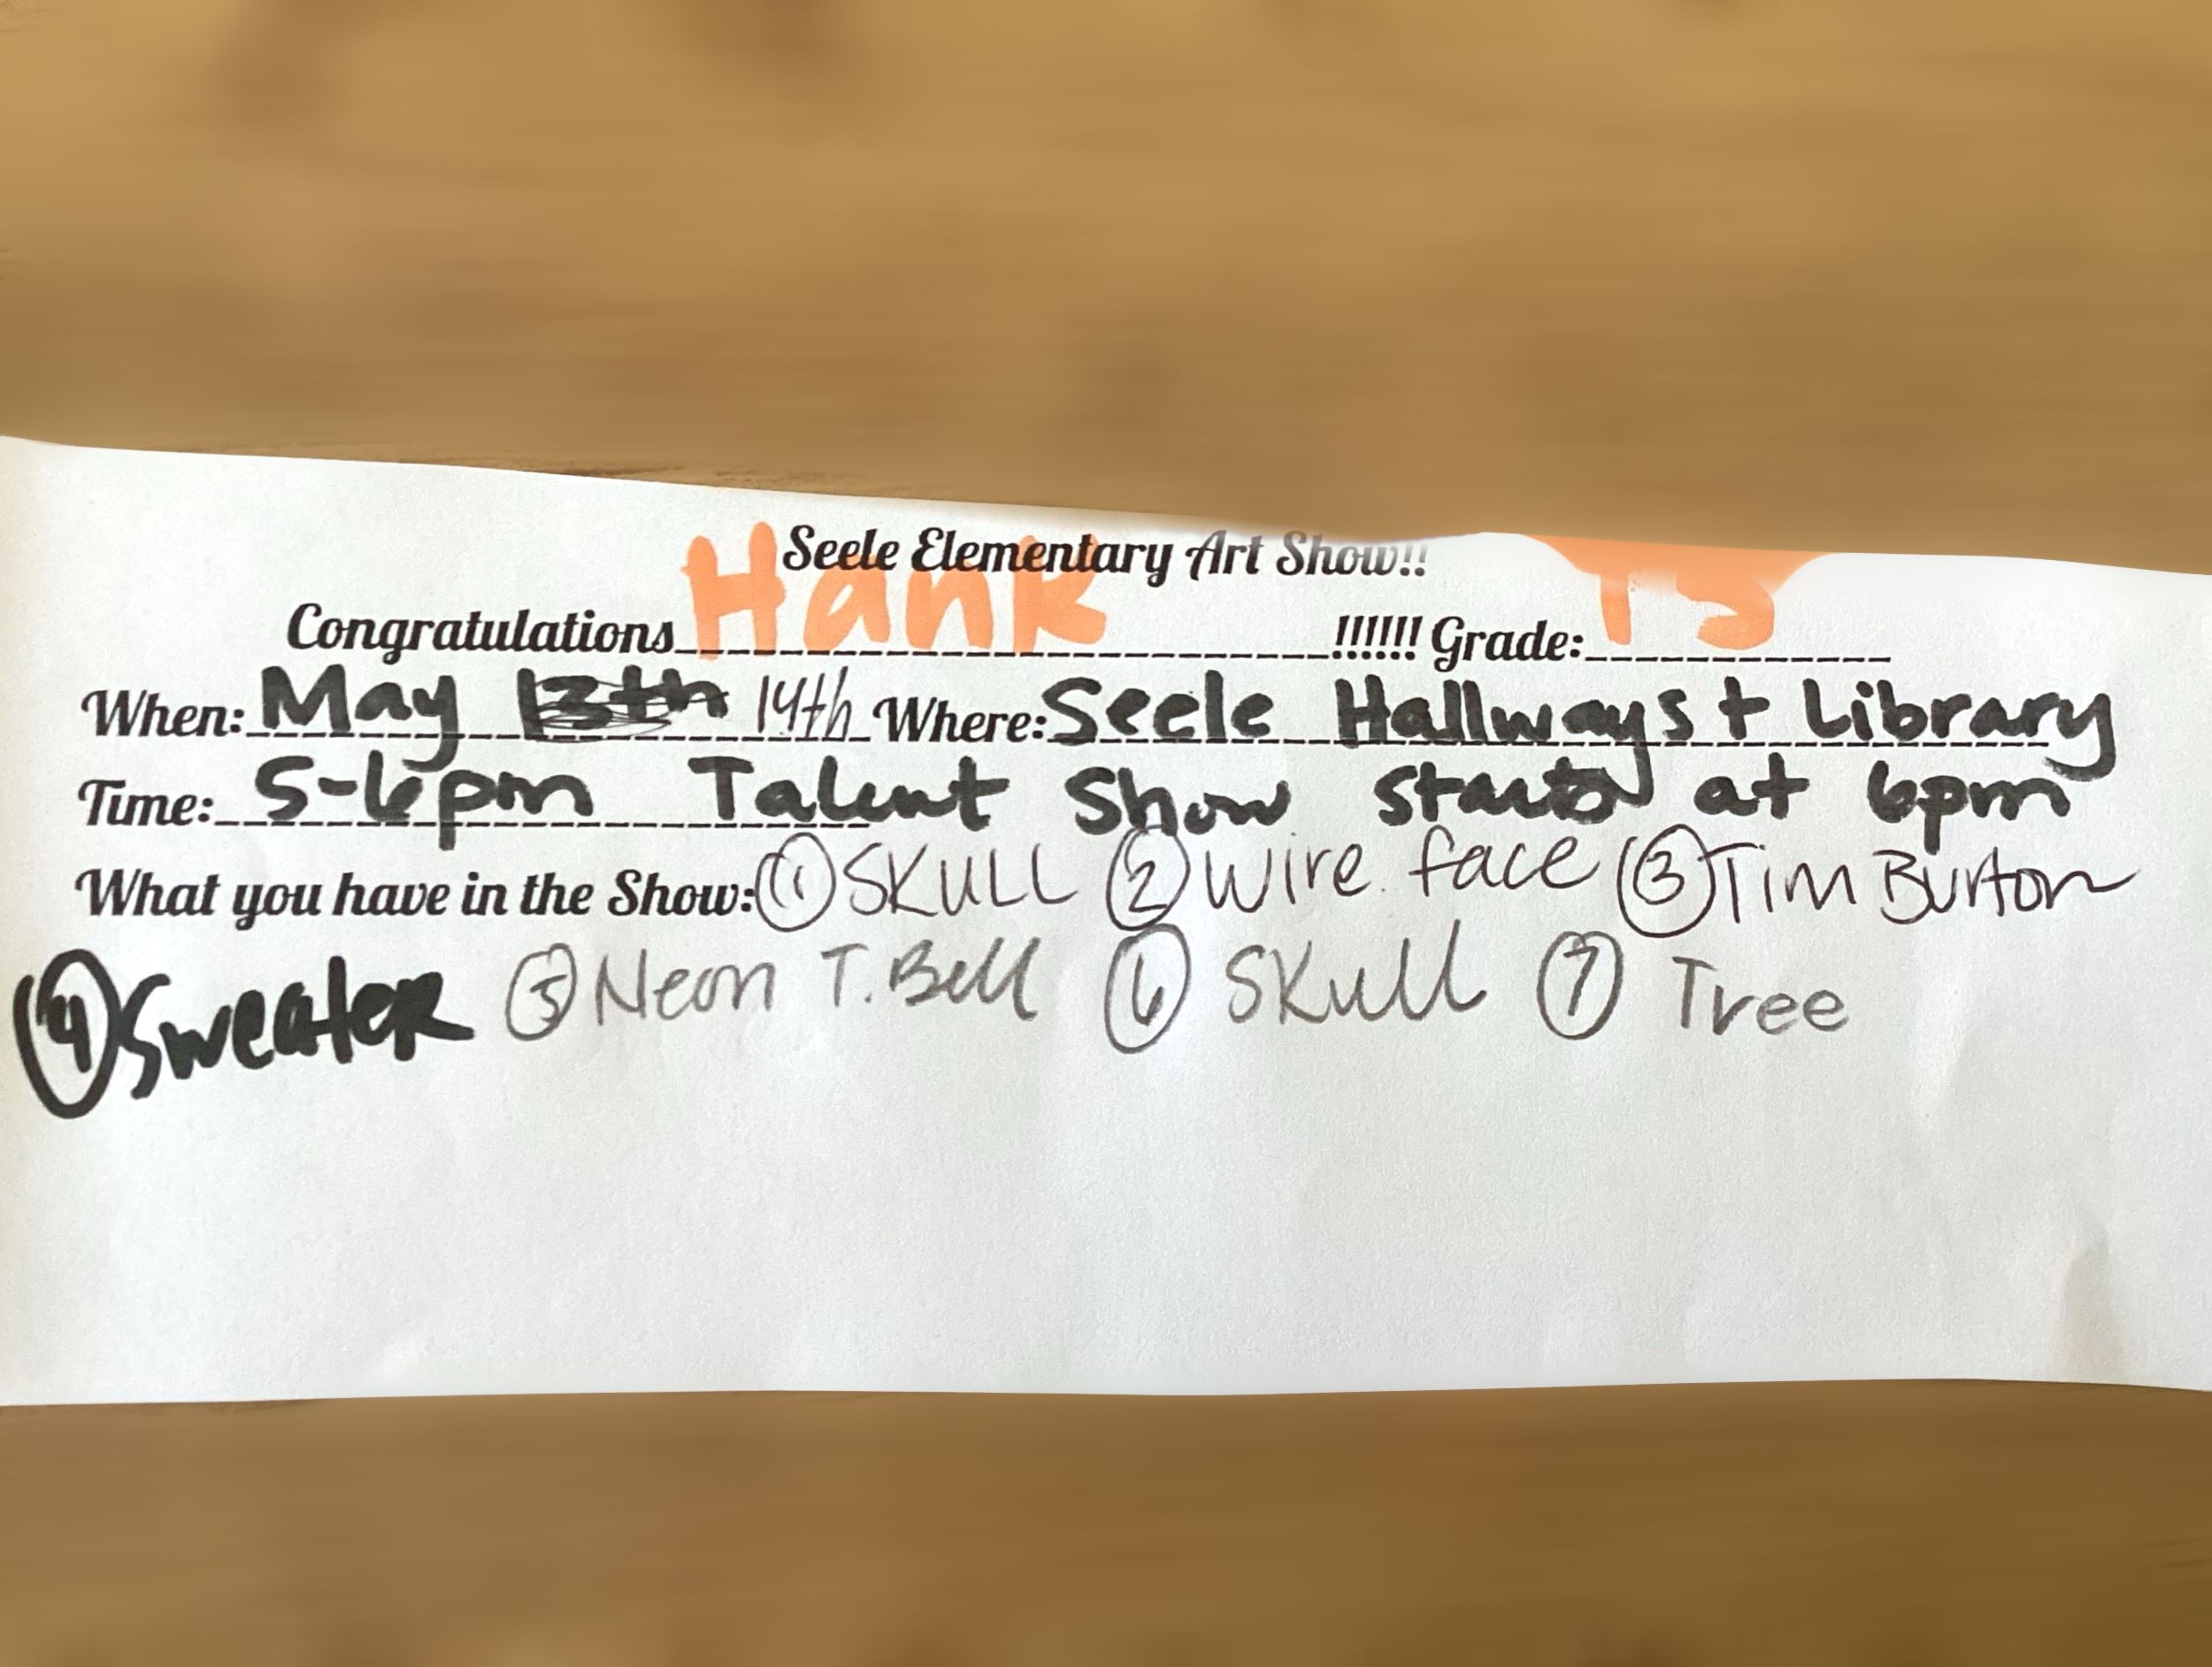 Seele Elementary Art Show!!
Congratulations Hank !!!!!! Grade:
When: May 13th 14th Where: Seele Hallways + Library
Time: 5-6pm Talent Show starts at 6pm
What you have in the Show: ① SKULL ② Wire face ③ Tim Burton
④ Sweater ⑤ Neon T. Bell ⑥ Skull ⑦ Tree